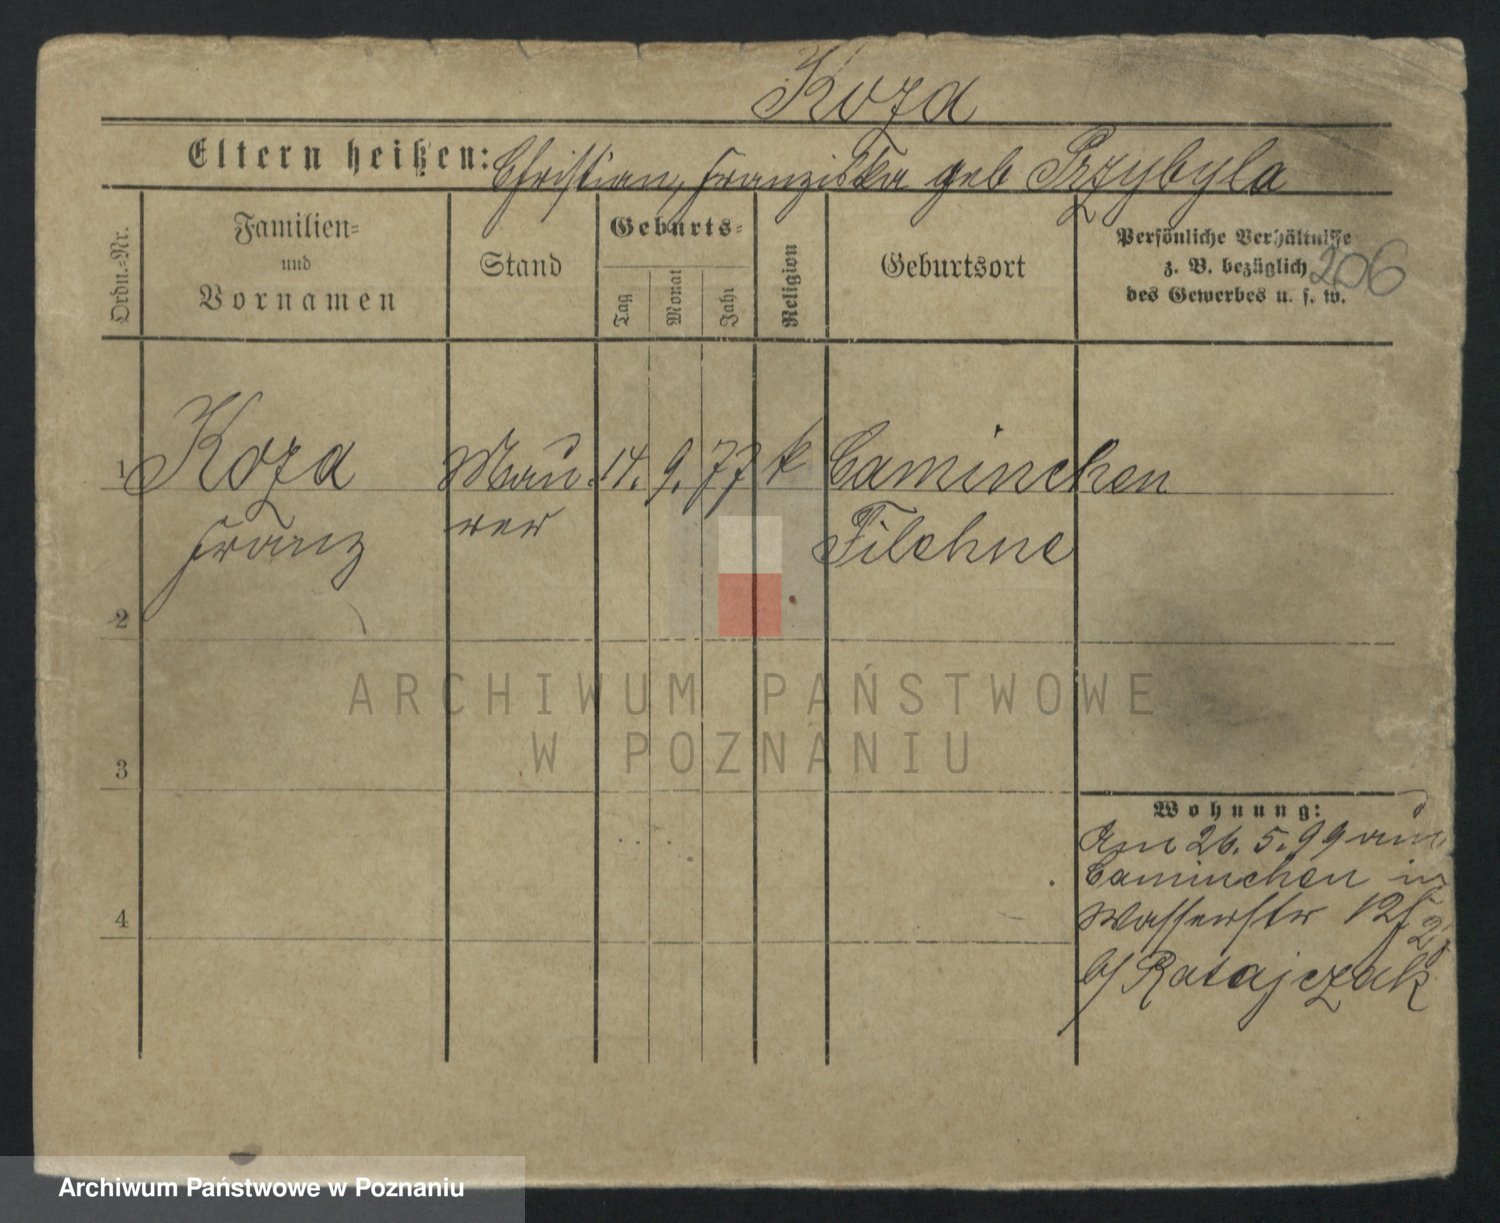 Koza
Eltern heißen: Christian, Franziska geb Przybyla
Ordn.-Nr.
Familien-
und
Vornamen
Stand
Geburts-
Tag
Monat
Jahr
Religion
Geburtsort
Persönliche Verhältnisse
z. B. bezüglich
des Gewerbes u. s. w.
206
1 Koza Mau 14. 9. 77 k Caminchen
Franz rer Filehne
2
ARCHIWUM PAŃSTWOWE
W POZNANIU
3
Wohnung:
Am 26. 5. 99 aus
Caminchen in
Wasserstr 12
4
b/ Ratajczak
Archiwum Państwowe w Poznaniu